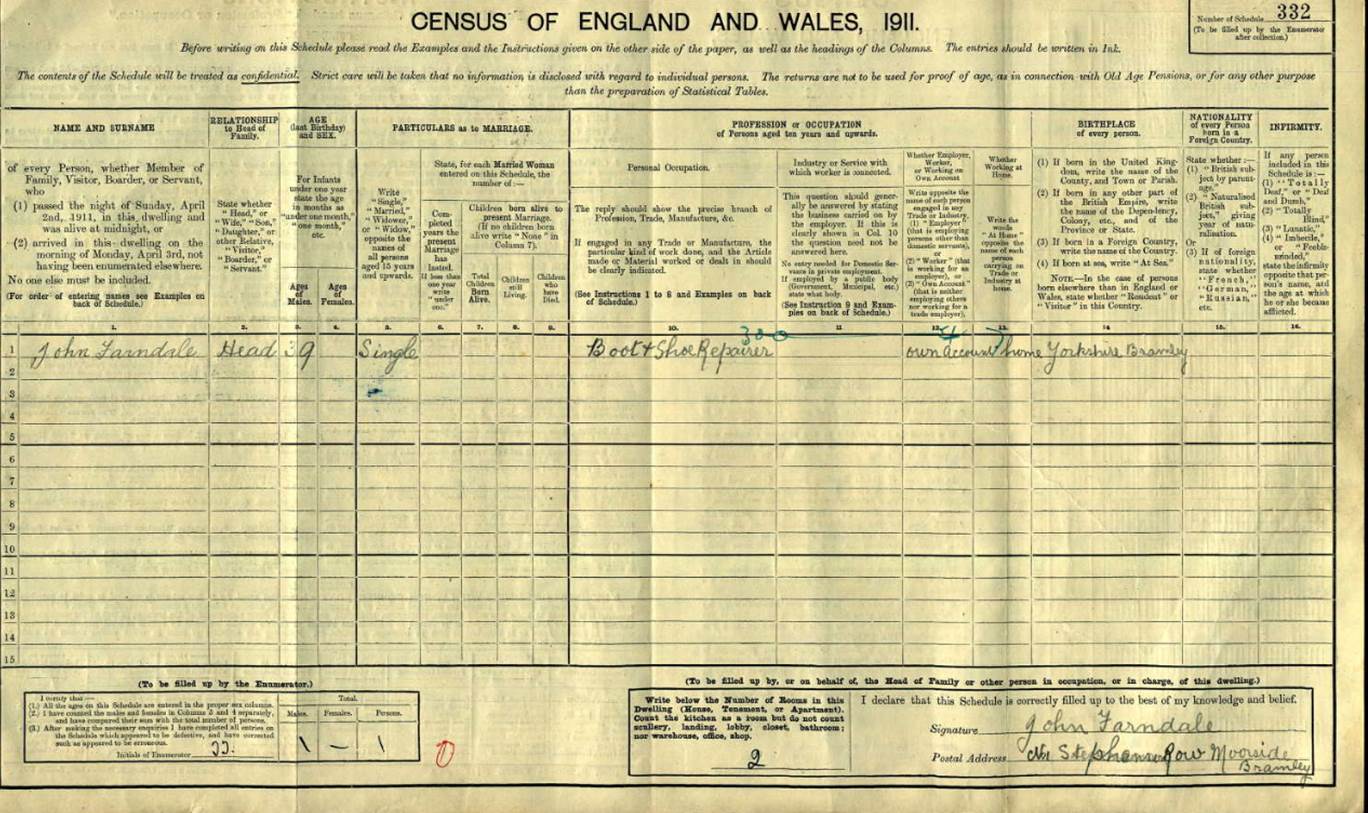 CENSUS OF ENGLAND AND WALES, 1911.
Number of Schedule 332
(To be filled up by the Enumerator after collection.)
Before writing on this Schedule please read the Examples and the Instructions given on the other side of the paper, as well as the headings of the Columns. The entries should be written in Ink.
The contents of the Schedule will be treated as confidential. Strict care will be taken that no information is disclosed with regard to individual persons. The returns are not to be used for proof of age, as in connection with Old Age Pensions, or for any other purpose
than the preparation of Statistical Tables.
NAME AND SURNAME
of every Person, whether Member of
Family, Visitor, Boarder, or Servant,
who
(1) passed the night of Sunday, April
2nd, 1911, in this dwelling and
was alive at midnight, or
(2) arrived in this dwelling on the
morning of Monday, April 3rd, not
having been enumerated elsewhere.
No one else must be included.
(For order of entering names see Examples on
back of Schedule.)
1.
RELATIONSHIP
to Head of
Family.
State whether
"Head," or
"Wife," "Son,"
"Daughter," or
other Relative,
"Visitor,"
"Boarder," or
"Servant."
2.
AGE
(last Birthday)
and SEX.
For Infants
under one year
state the age
in months as
"under one month,"
"one month,"
etc.
Ages
of
Males.
3.
Ages
of
Females.
4.
PARTICULARS as to MARRIAGE.
Write
"Single,"
"Married,"
"Widower,"
or "Widow,"
opposite the
names of
all persons
aged 15 years
and upwards.
5.
State, for each Married Woman
entered on this Schedule, the
number of:—
Completed
years the
present
Marriage
has
lasted.
If less than
one year
write
"under
one."
6.
Children born alive to
present Marriage.
(If no children born
alive write "None" in
Column 7).
Total
Children
Born
Alive.
7.
Children
still
Living.
8.
Children
who
have
Died.
9.
PROFESSION or OCCUPATION
of Persons aged ten years and upwards.
Personal Occupation.
The reply should show the precise branch of
Profession, Trade, Manufacture, &c.
If engaged in any Trade or Manufacture, the
particular kind of work done, and the Article
made or Material worked or dealt in should
be clearly indicated.
(See Instructions 1 to 8 and Examples on back
of Schedule.)
10.
Industry or Service with
which worker is connected.
This question should gener-
ally be answered by stating
the business carried on by
the employer. If this is
clearly shown in Col. 10
the question need not be
answered here.
No entry needed for Domestic Ser-
vants in private employment.
If employed by a public body
(Government, Municipal, etc.)
state what body.
(See Instruction 9 and Exam-
ples on back of Schedule.)
11
Whether Employer,
Worker,
or Working on
Own Account
Write opposite the
name of each person
engaged in any
Trade or Industry,
(1) "Employer"
(that is employing
persons other than
domestic servants),
or
(2) "Worker" (that
is working for an
employer), or
(3) "Own Account"
(that is neither
employing others
nor working for a
trade employer).
12
Whether
Working at
Home.
Write the
words
"At Home"
opposite the
name of each
person
carrying on
Trade or
Industry at
home.
13.
BIRTHPLACE
of every person.
(1) If born in the United King-
dom, write the name of the
County, and Town or Parish.
(2) If born in any other part of
the British Empire, write
the name of the Dependency,
Colony, etc., and of the
Province or State.
(3) If born in a Foreign Country,
write the name of the Country.
(4) If born at sea, write "At Sea."
NOTE.—In the case of persons
born elsewhere than in England or
Wales, state whether "Resident" or
"Visitor" in this Country.
14
NATIONALITY
of every Person
born in a
Foreign Country.
State whether:—
(1) "British sub-
ject by parent-
age."
(2) "Naturalised
British sub-
ject," giving
year of natu-
ralisation.
Or
(3) If of foreign
nationality,
state whether
"French,"
"German,"
"Russian,"
etc.
15.
INFIRMITY.
If any person
included in this
Schedule is:—
(1) "Totally
Deaf," or "Deaf
and Dumb,"
(2) "Totally
Blind,"
(3) "Lunatic,"
(4) "Imbecile,"
or "Feeble-
minded,"
state the infirmity
opposite that per-
son's name, and
the age at which
he or she became
afflicted.
16.
1 John Farndale Head 39 Single Boot & Shoe Repairer 300 own Account 4 home Yorkshire Bramley
2
3
4
5
6
7
8
9
10
11
12
13
14
15
(To be filled up by the Enumerator.)
I certify that:—
(1.) All the ages on this Schedule are entered in the proper sex columns.
(2.) I have counted the males and females in Columns 3 and 4 separately,
and have compared their sum with the total number of persons.
(3.) After making the necessary enquiries I have completed all entries on
the Schedule which appeared to be defective, and have corrected
such as appeared to be erroneous.
Initials of Enumerator
Total.
Males. Females. Persons.
1 — 1
0
(To be filled up by, or on behalf of, the Head of Family or other person in occupation, or in charge, of this dwelling.)
Write below the Number of Rooms in this
Dwelling (House, Tenement, or Apartment).
Count the kitchen as a room but do not count
scullery, landing, lobby, closet, bathroom;
nor warehouse, office, shop.
2
I declare that this Schedule is correctly filled up to the best of my knowledge and belief.
Signature John Farndale
Postal Address Row Moorside
Bramley